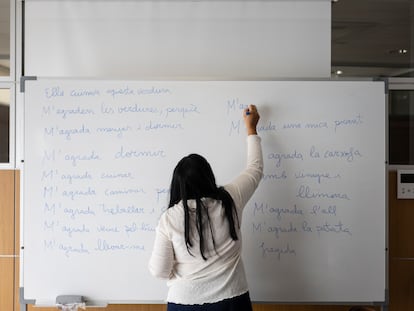 Ella cuinar aquesta verdura
M'agraden les verdures, perquè
M'agrada menjar i dormir
M'agrada dormir
M'agrada cuinar
M'agrada caminar per
M'agrada treballar i
M'agrada veure pel·lí
M'agrada lleure-me
M'a
M'agrada una mica picant
agrada la carxofa
amb vinagre i
llimona
M'agrada l'all
M'agrada la patata
fregida